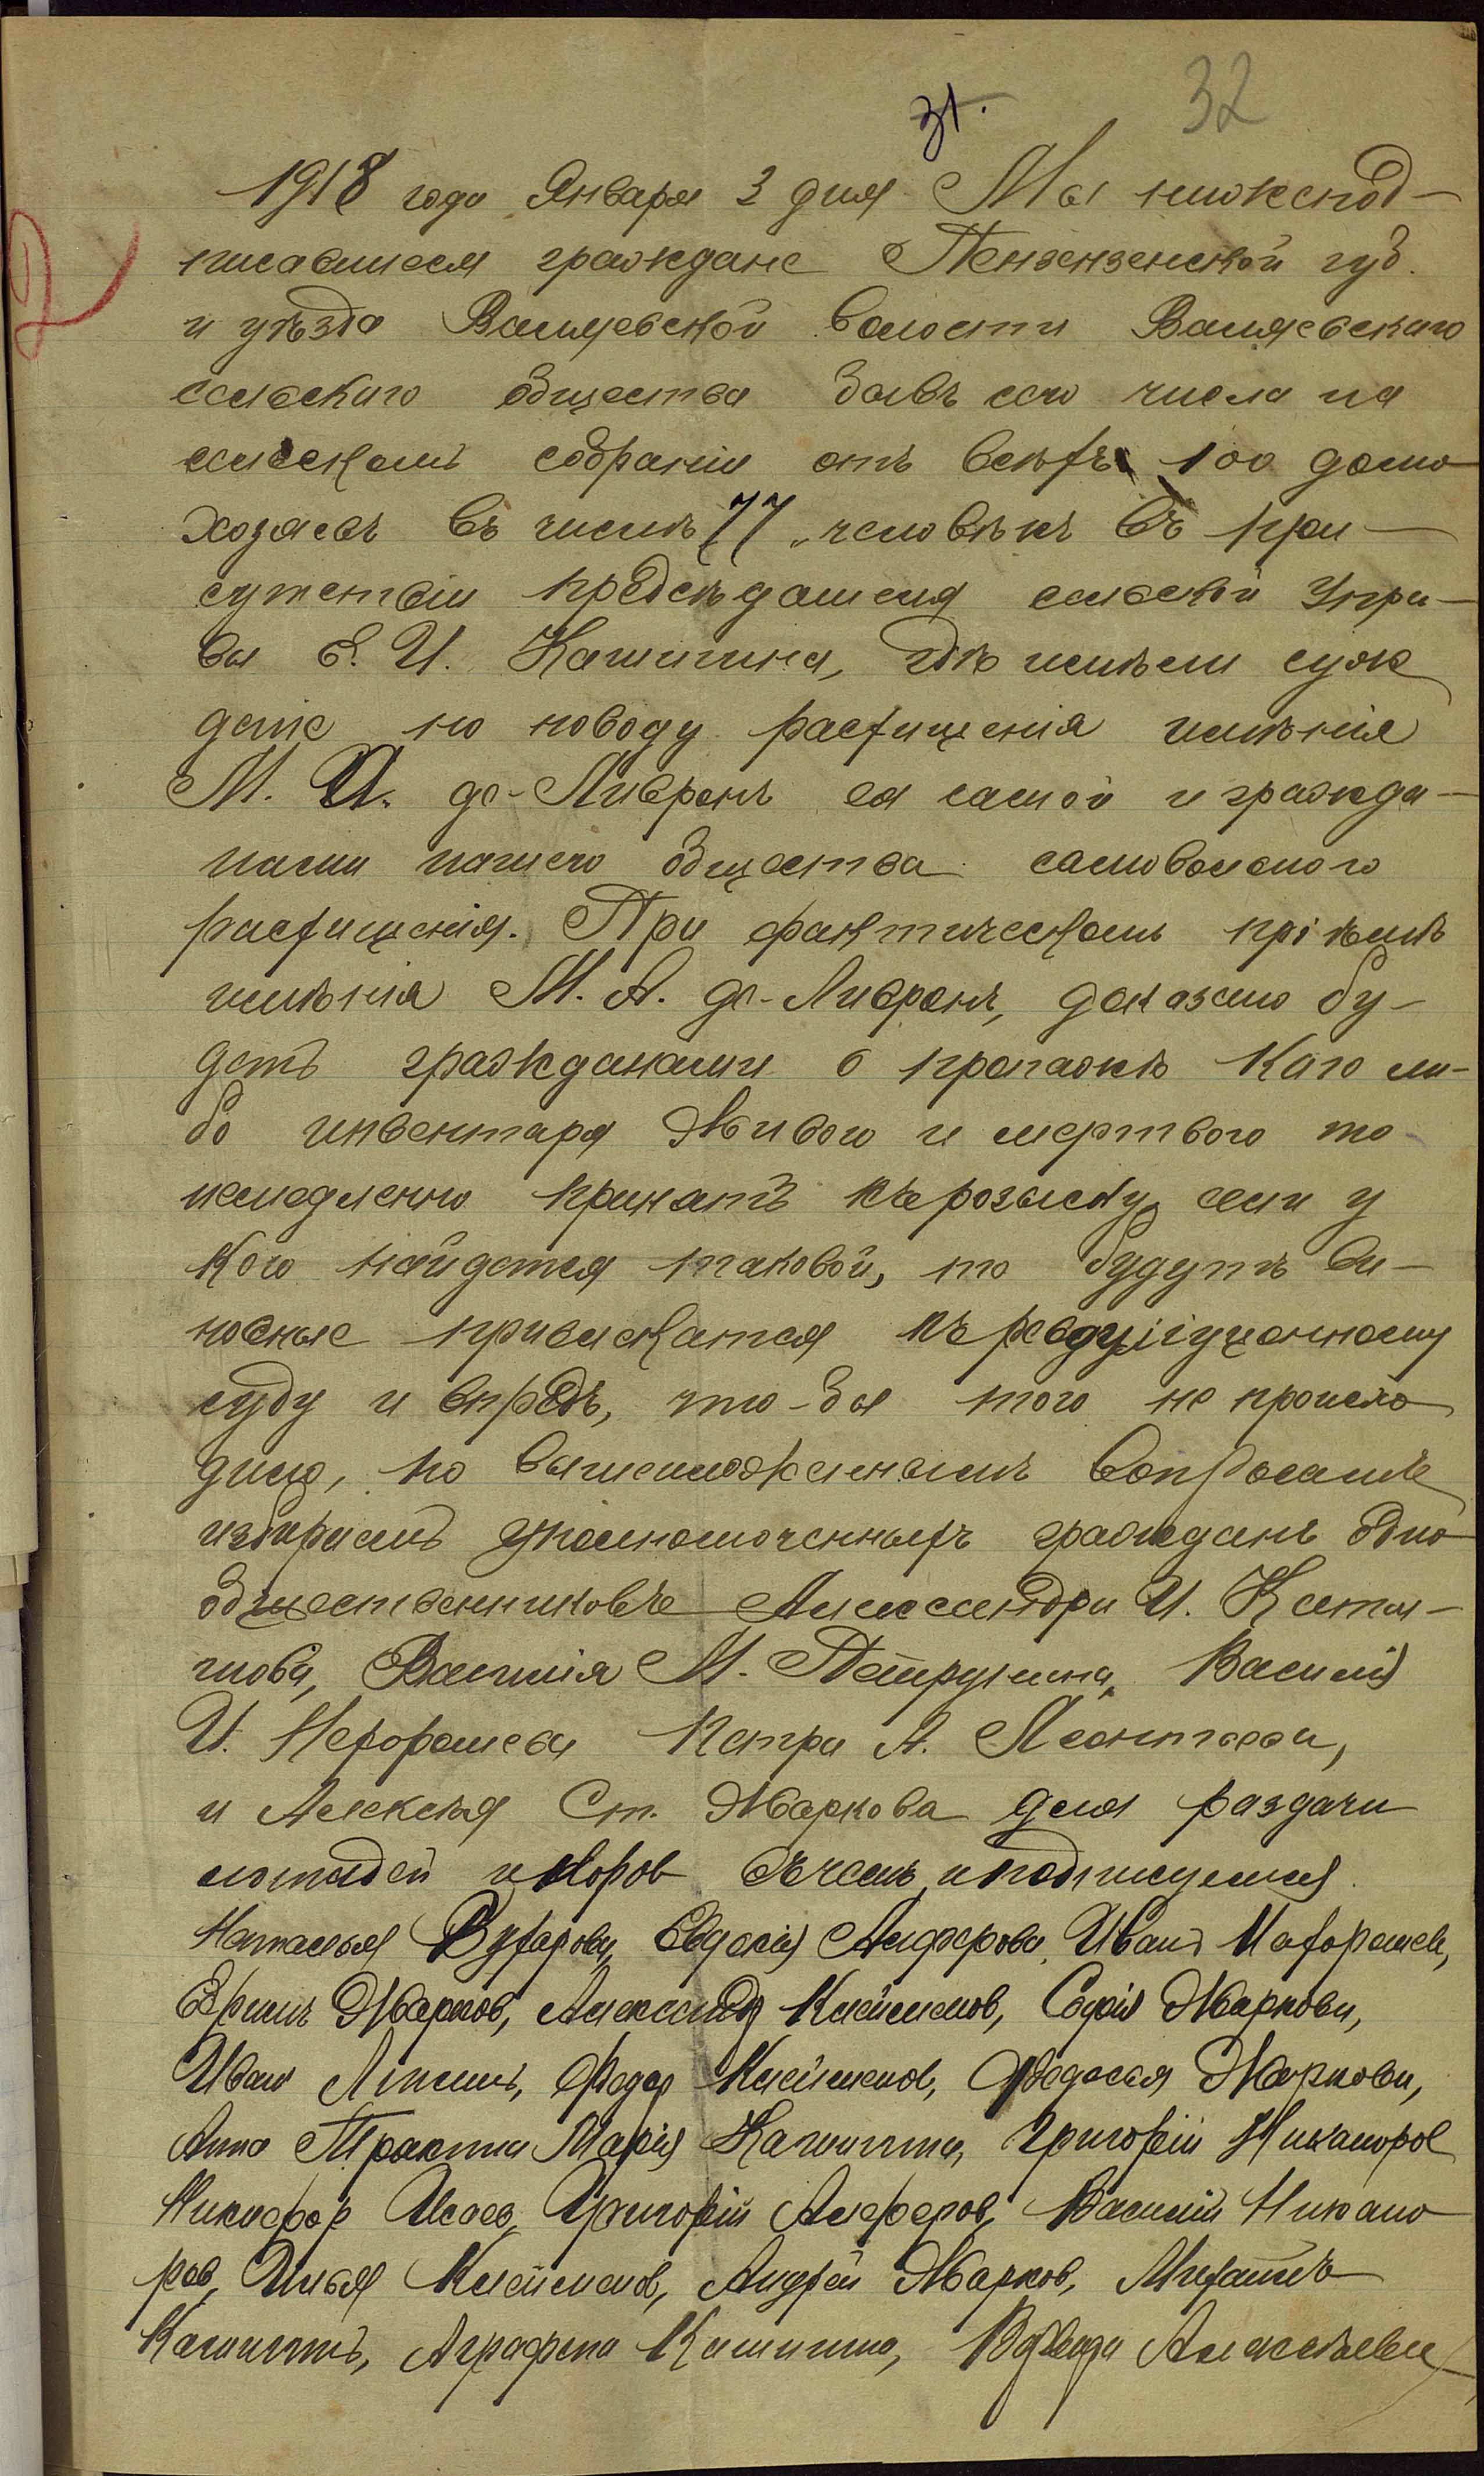 31. 32
2
1918 года Января 3 дня Мы нижепод-
писавшиеся граждане Пензензенской губ.
и уѣзда Валяевской волости Валяевскаго
сельскаго общества бывъ сего числа на
сельскомъ собраніи отъ всѣхъ 100 домо-
хозяевъ въ числѣ 77 человѣкъ въ при-
сутствіи предсѣдателя сельской Упра-
вы И. Кашигина, гдѣ имѣли суж
деніе по поводу расхищенія имѣнія
М. А. де-Ливронъ ея самой и гражда-
нами нашего общества самовольного
расхищенія. При фактическомъ пріемѣ
имѣнія М. А. де-Ливронъ, доказано бу-
детъ гражданами о пропажѣ каго ли-
бо инвентаря живого и мертвого то
немедленно принять къ розыску, если у
кого найдется таковой, то будутъ ви-
новные привлекатся къ революціонному
суду и впредь, что-бы того не происхо
дило, по вышеизложеннымъ вопросамъ
избираемъ уполномоченныхъ гражданъ одно
общественниковъ Александра И.
Василія М. Петрунина, Василія
И. Петра А. Леонтьева,
и Алексѣя Ст. Маркова для раздачи
лошадей и коров въ чемъ и подписуемся.
Наталья Евдокія Алферова, Иванъ
Ефимъ Марков, Александр Клейменов, Софія Маркова,
Иван Федор Клейменов, Федосья Маркова,
Анна Марія Кашигина, Григорій Никаноров
Никифор Исаев, Григорій Алферов, Василій Никано
ров, Илья Клейменов, Андрей Марков, Михаилъ
Кашигинъ, Аграфена Кашигина, Алексѣева